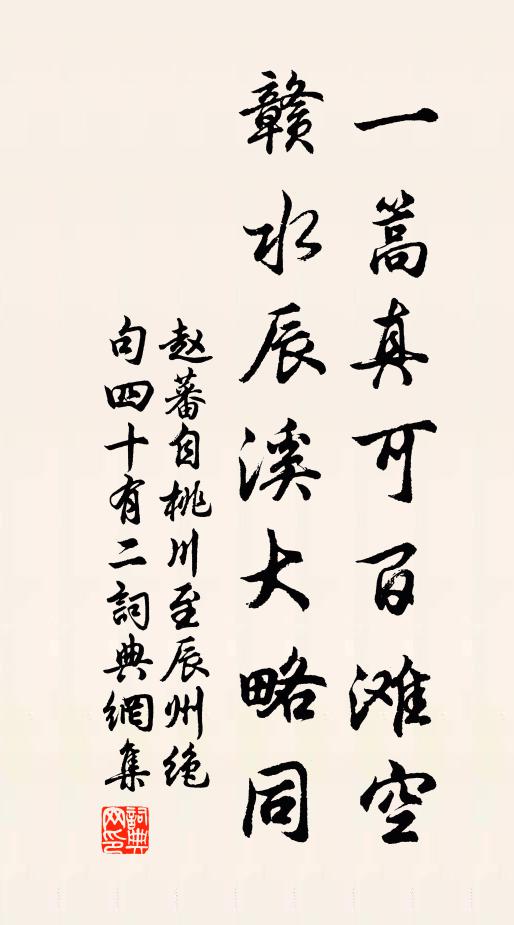 一蒿真可百滩空
赣水辰溪大略同
赵蕃自桃川至辰州绝
句四十有二詞典網集
詞典
网印